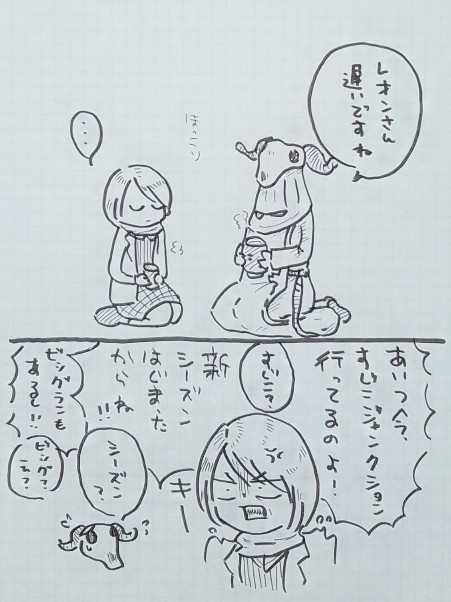 レオンさん
遅いですね
ほっこり
・・・
あいつ今、
すじこジャンクション
行ってるのよー!
すじこ?
新
シーズン
はじまった
からね!!
キー
シーズン
?
ビッグランも
あるし!!
ビッグ?
え?